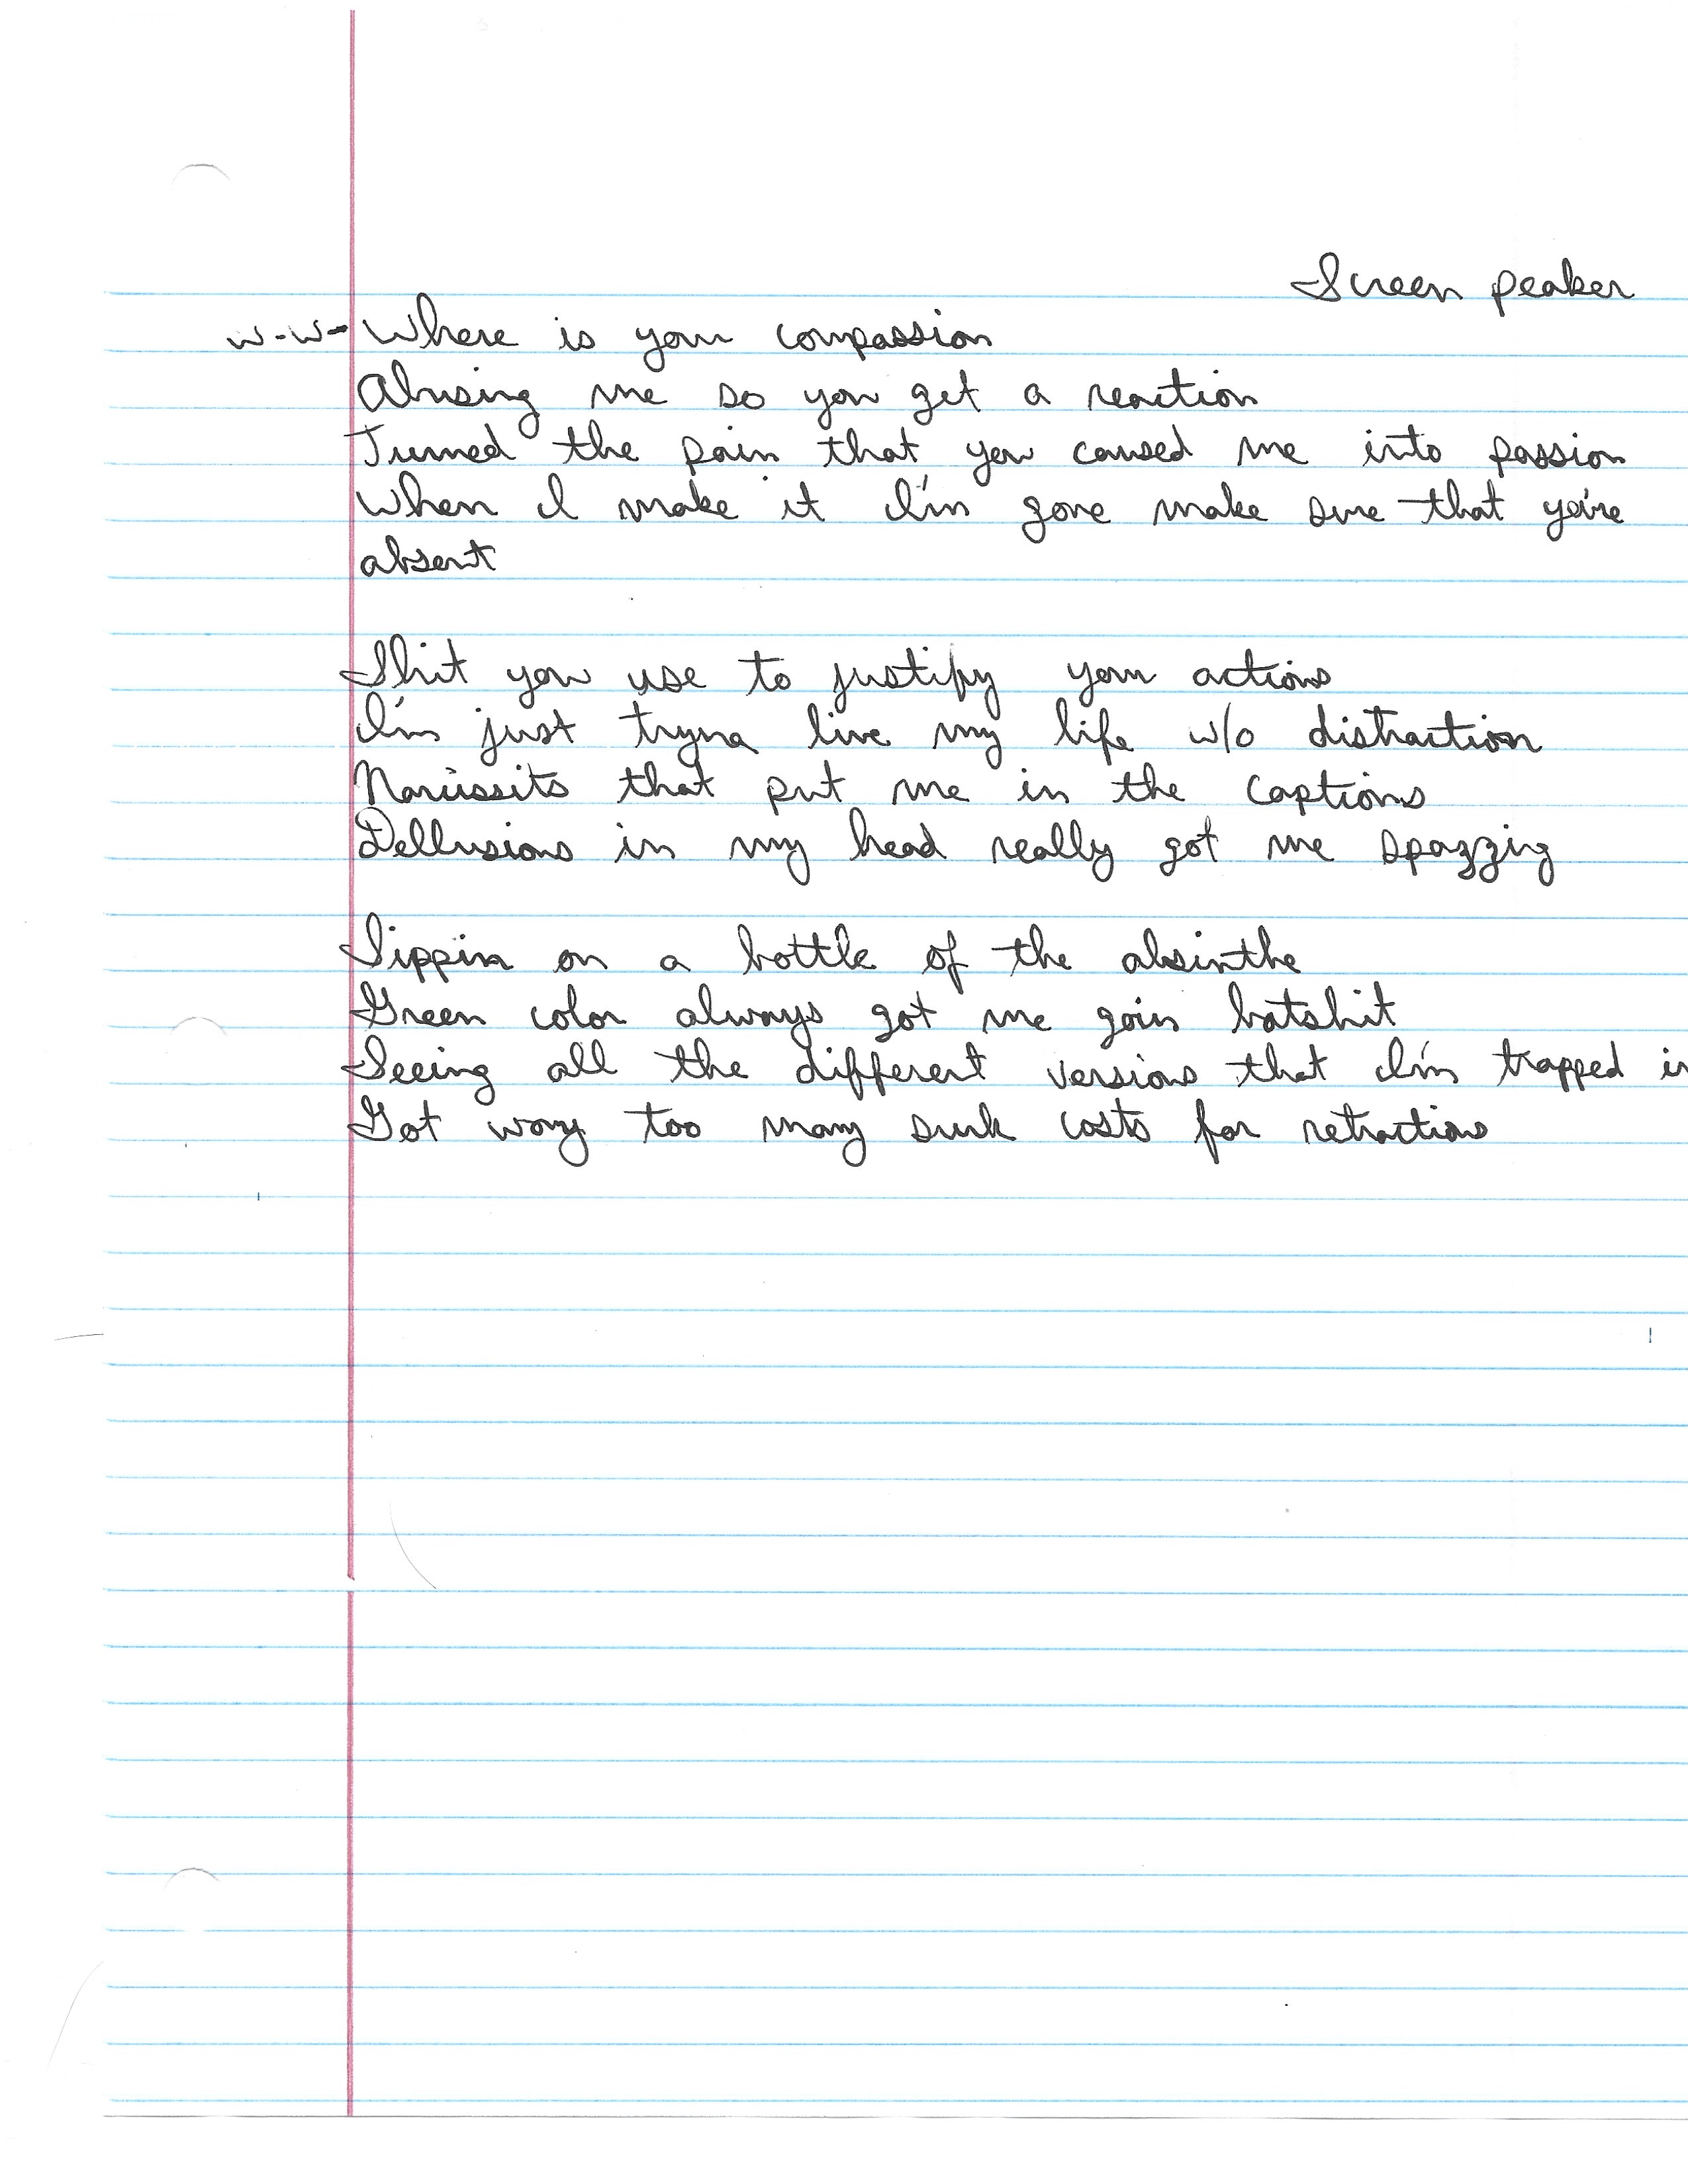 Screen peaker
w-w-Where is your compassion
Abusing me so you get a reaction
Turned the pain that you caused me into passion
When I make it I'm gone make sure that you're
absent
Shit you use to justify your actions
I'm just tryna live my life w/o distraction
Narcissits that put me in the captions
Dellusions in my head really got me spazzing
Sippin on a bottle of the absinthe
Green color always got me goin batshit
Seeing all the different versions that I'm trapped in
Got way too many sunk costs for retractions